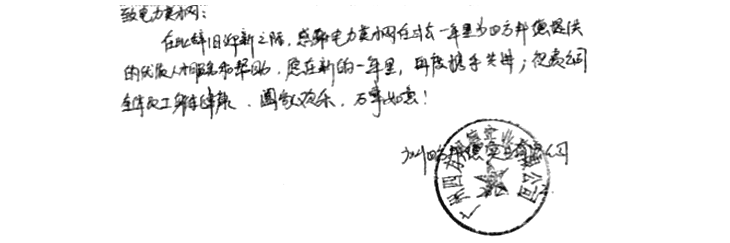 致电力英才网:
在此辞旧迎新之际,感谢电力英才网在过去一年里为四方邦德提供
的优质人才服务和帮助,愿在新的一年里,再度携手共进;祝贵公司
全体员工身体健康、阖家欢乐、万事如意!
广州四方邦德实业有限公司
广州四方邦德实业有限公司